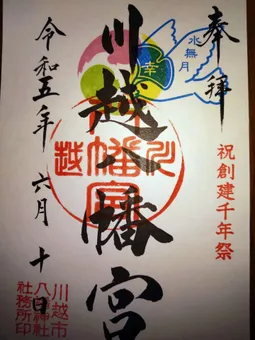 奉拝
水無月
幸
祝創建千年祭
川越八幡宮
川越
八幡宮
令和五年六月十日
川越市
八幡神社
社務所印